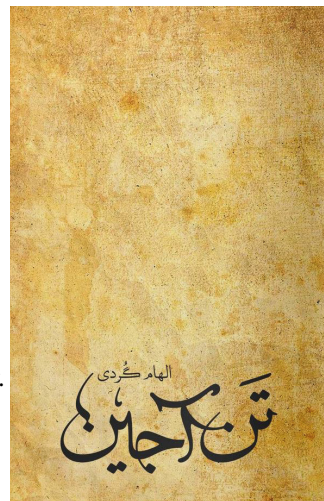 الهام کُردی
تَن آجین